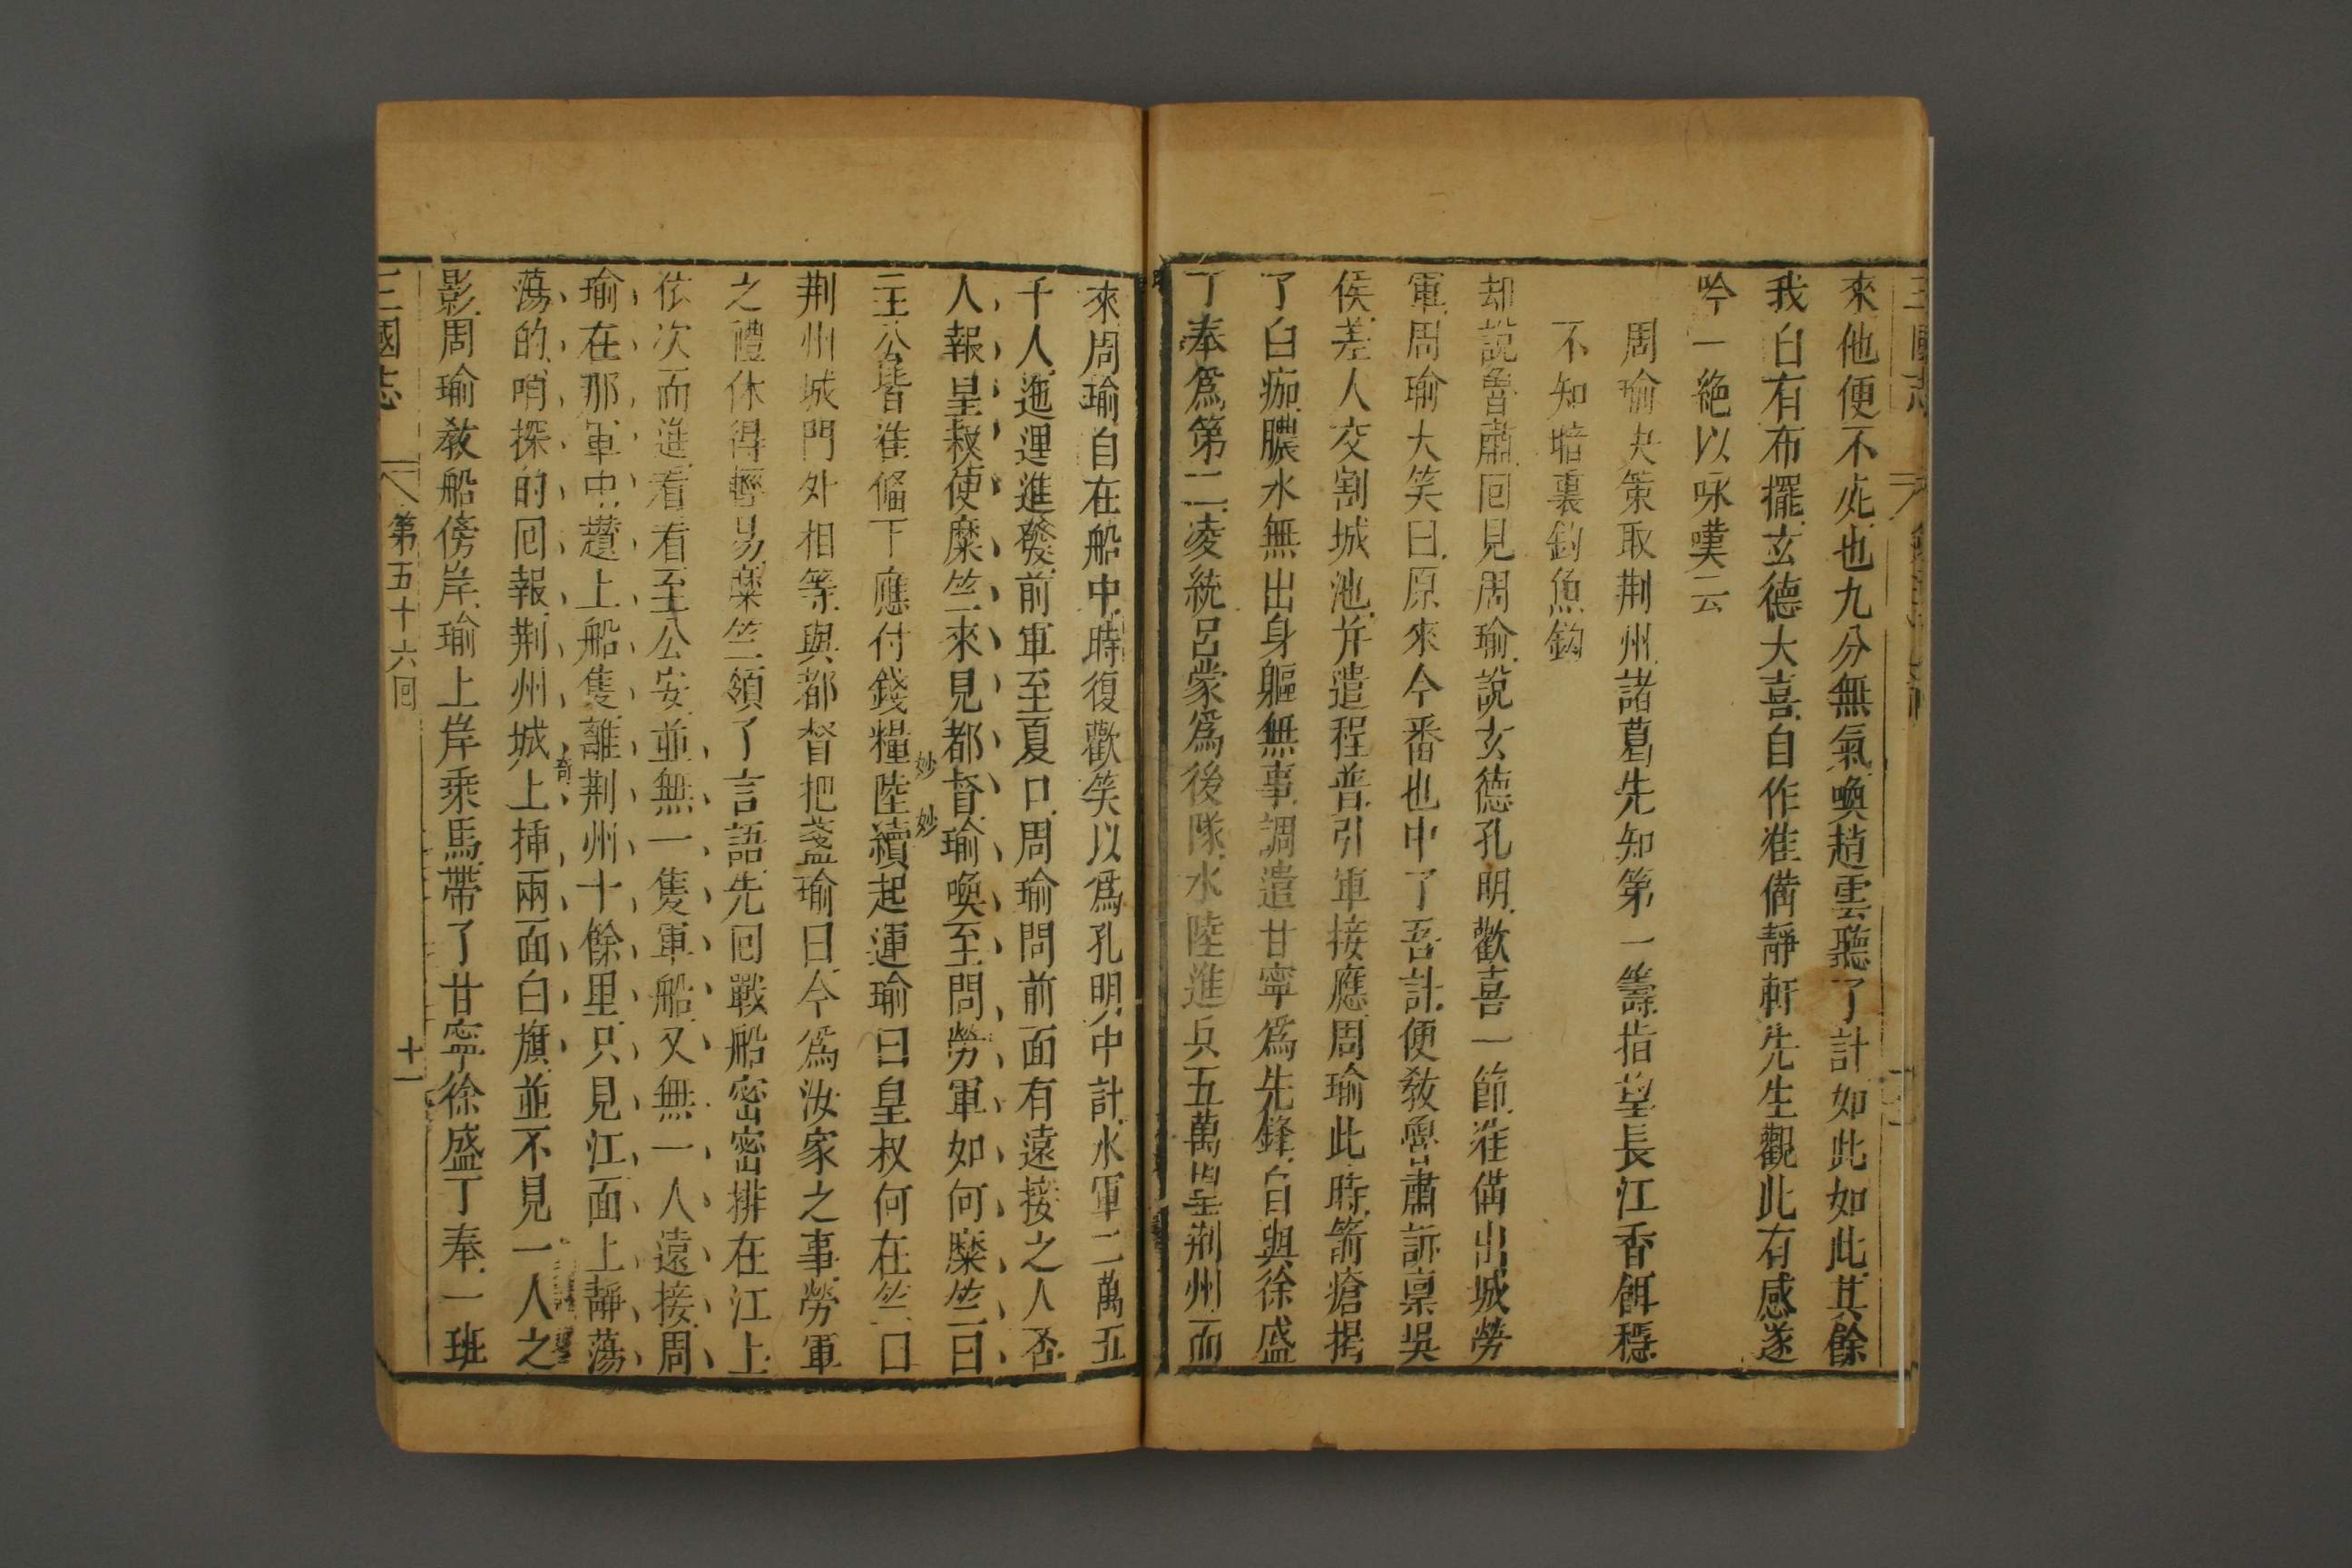 來他便不死也九分無氣喚趙雲聽了計如此如此其餘
我自有布擺玄德大喜自作准備靜軒先生觀此有感遂
吟一絶以咏嘆云
周瑜决策取荆州諸葛先知第一籌指望長江香餌穩
不知暗裏釣魚鈎
却說魯肅回見周瑜說玄德孔明歡喜一節准備出城勞
軍周瑜大笑曰原來今番也中了吾計便教魯肅訴禀吳
侯差人交割城池并遣程普引軍接應周瑜此時箭瘡
了白痂膿水無出身軀無事調遣甘寧爲先鋒自與徐盛
丁奉爲第二凌統呂蒙爲後隊水陸進兵五萬望荆州而
來周瑜自在船中時復歡笑以爲孔明中計水軍二萬五
千人迤邐進發前軍至夏口周瑜問前面有遠接之人否
人報皇叔使糜竺來見都督瑜喚至問勞軍如何糜竺曰
主公皆准偹下應付錢糧陸續起運瑜曰皇叔何在竺曰
妙 妙
荆州城門外相等與都督把盞瑜曰今爲汝家之事勞軍
之禮休得輕易糜竺領了言語先回戰船密密排在江上
依次而進看看至公安並無一隻軍船又無一人遠接周
瑜在那軍中趲上船隻離荆州十餘里只見江面上靜蕩
蕩的哨探的回報荆州城上挿兩面白旗並不見一人之
奇
影周瑜教船傍岸瑜上岸乘馬帶了甘寧徐盛丁奉一班
三國志 第五十六回 十一